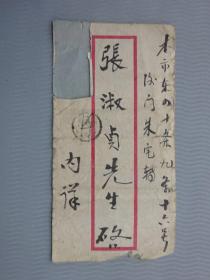 本市东四十条九号十六号
後门朱宅转
張淑貞先生啟
内详